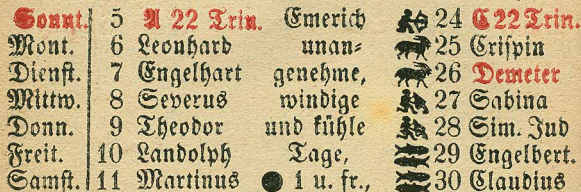 Sonnt. 5 A 22 Trin. Emerich 24 C 22 Trin.
Mont. 6 Leonhard unan- 25 Crispin
Dienst. 7 Engelhart genehme, 26 Demeter
Mittw. 8 Severus windige 27 Sabina
Donn. 9 Theodor und kühle 28 Sim. Jud
Freit. 10 Landolph Tage, 29 Engelbert.
Samst. 11 Martinus ● 1 u. fr., 30 Claudius